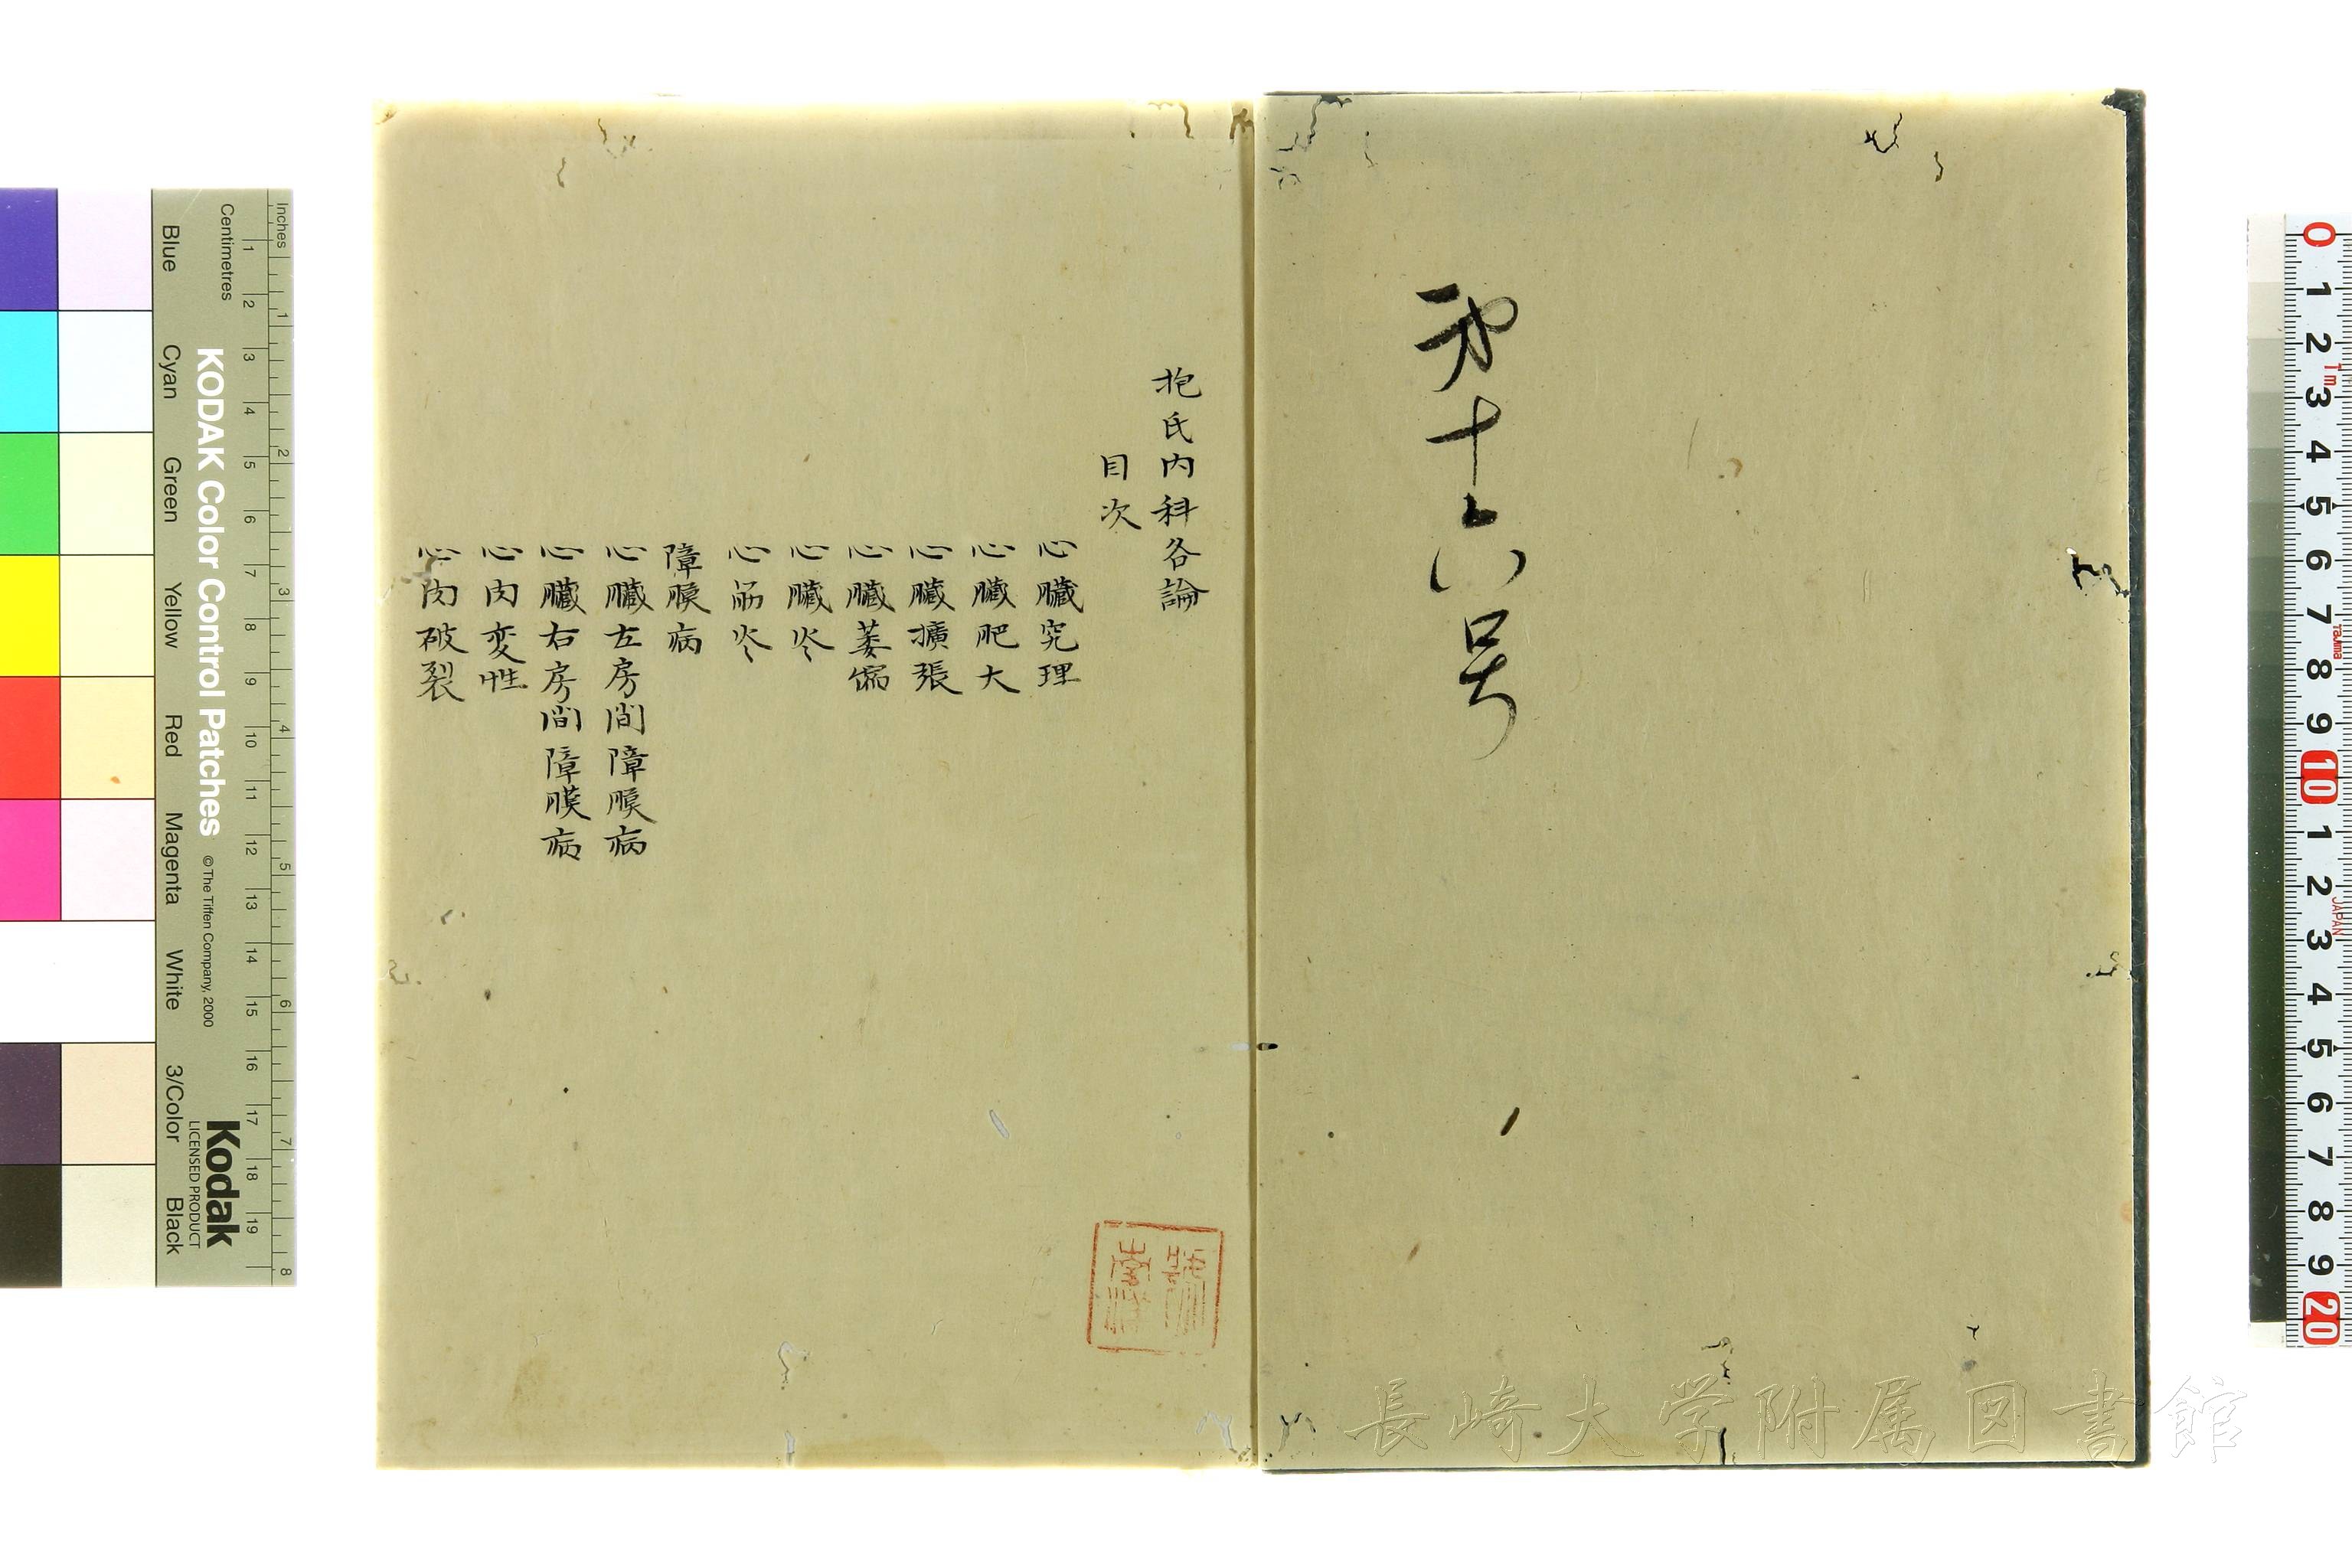 第十六号
抱氏内科各論
目次
心臓究理
心臓肥大
心臓擴張
心臓萎縮
心臓炎
心筋炎
障膜病
心臓左房間障膜病
心臓右房間障膜病
心肉変性
心肉破裂
長崎大学附属図書館
KODAK Color Control Patches
© The Tiffen Company, 2000
Kodak
LICENSED PRODUCT
Inches
1 2 3 4 5 6 7 8
Centimetres
1 2 3 4 5 6 7 8 9 10 11 12 13 14 15 16 17 18 19
Blue
Cyan
Green
Yellow
Red
Magenta
White
3/Color
Black
0 1 2 3 4 5 6 7 8 9 10 1 2 3 4 5 6 7 8 9 20
1m
JAPAN